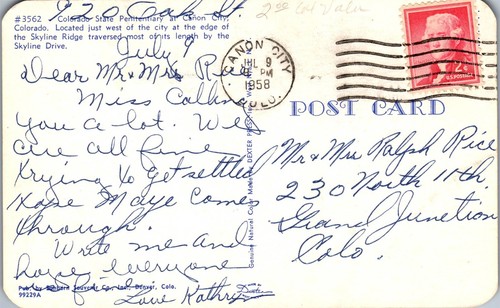 920 Oak St.
#3562 Colorado State Penitentiary at Canon City,
Colorado. Located just west of the city at the edge of
the Skyline Ridge traversed most of its length by the
Skyline Drive.
July 9
Dear Mr & Mrs Rice
Miss Collins
You a lot. We
are all fine
trying to get settled
Hope Maye comes
through.
Write me and
hope everyone
is fine
Love Kathryn
Pub. by Sanborn Souvenir Co., Inc., Denver, Colo.
99229A
Genuine Natural Color Made by DEXTER PRESS
Dexter
CANON CITY
JUL 9
PM
1958
COLO.
2¢
U.S. POSTAGE
POST CARD
Mr & Mrs Ralph Rice
230 North 11th.
Grand Junction
Colo.